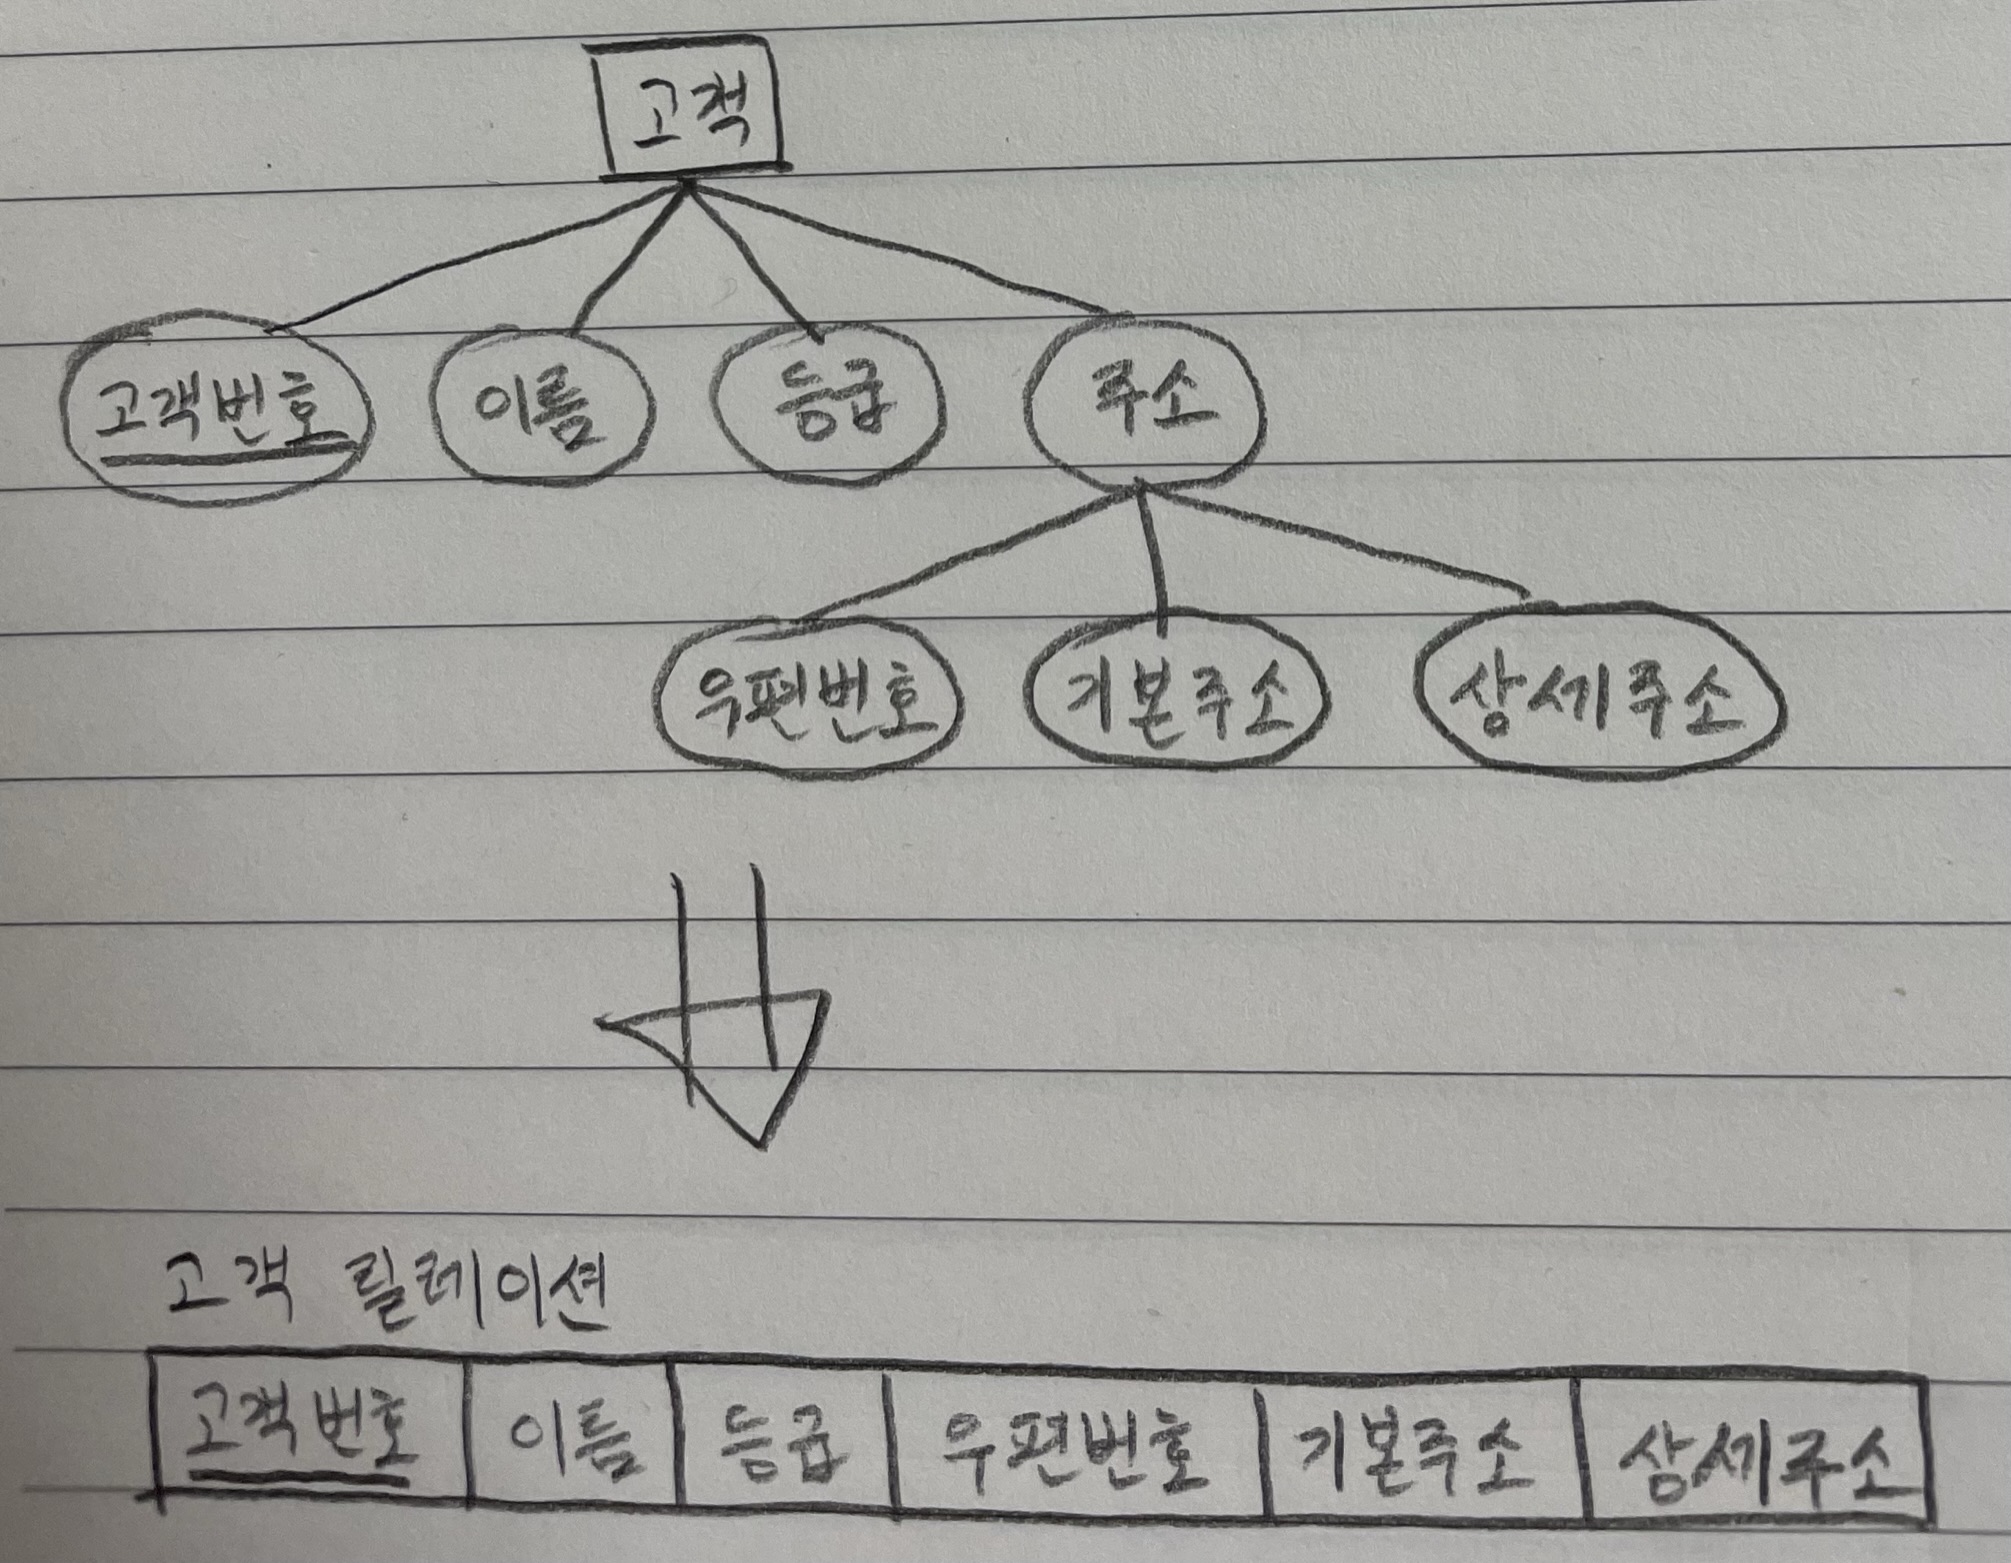 고객
고객번호 이름 등급 주소
우편번호 기본주소 상세주소
고객 릴레이션
고객번호 이름 등급 우편번호 기본주소 상세주소